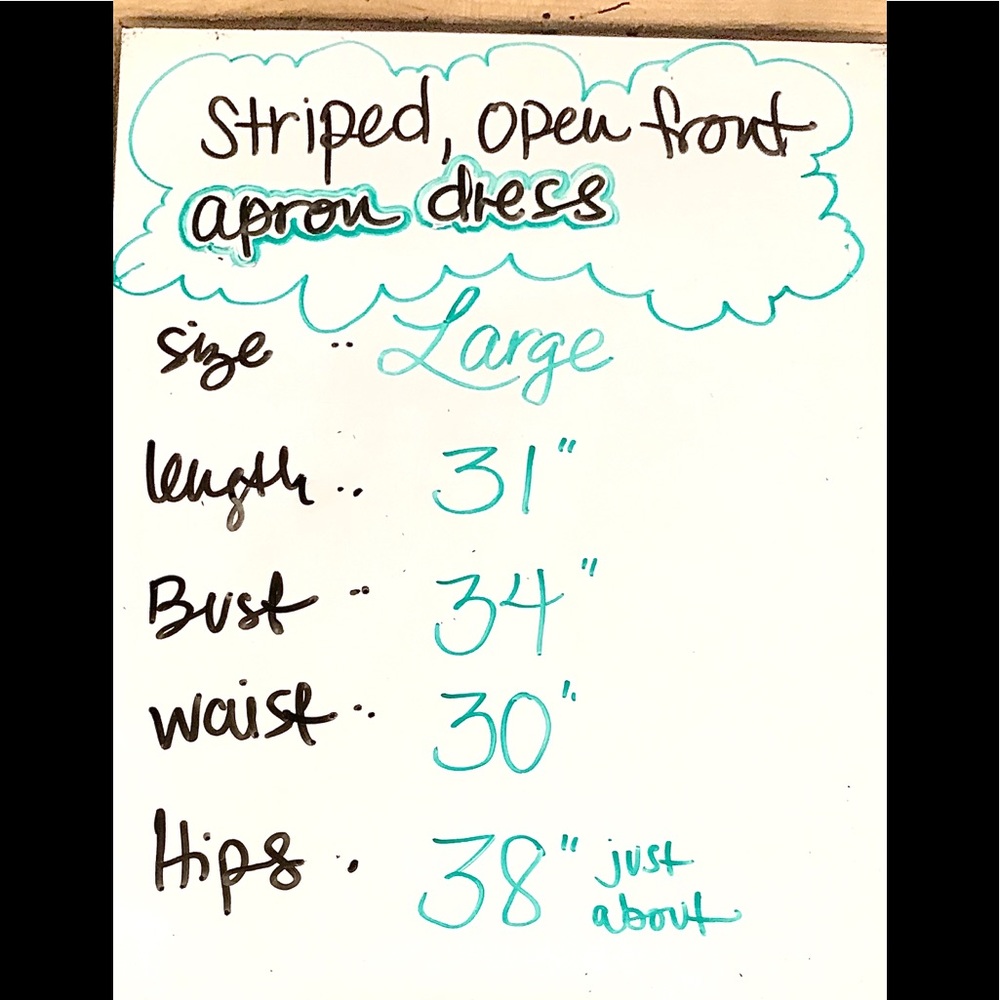 Striped, open front
apron dress
size .. Large
length .. 31"
Bust .. 34"
waist .. 30"
Hips . 38" just
about